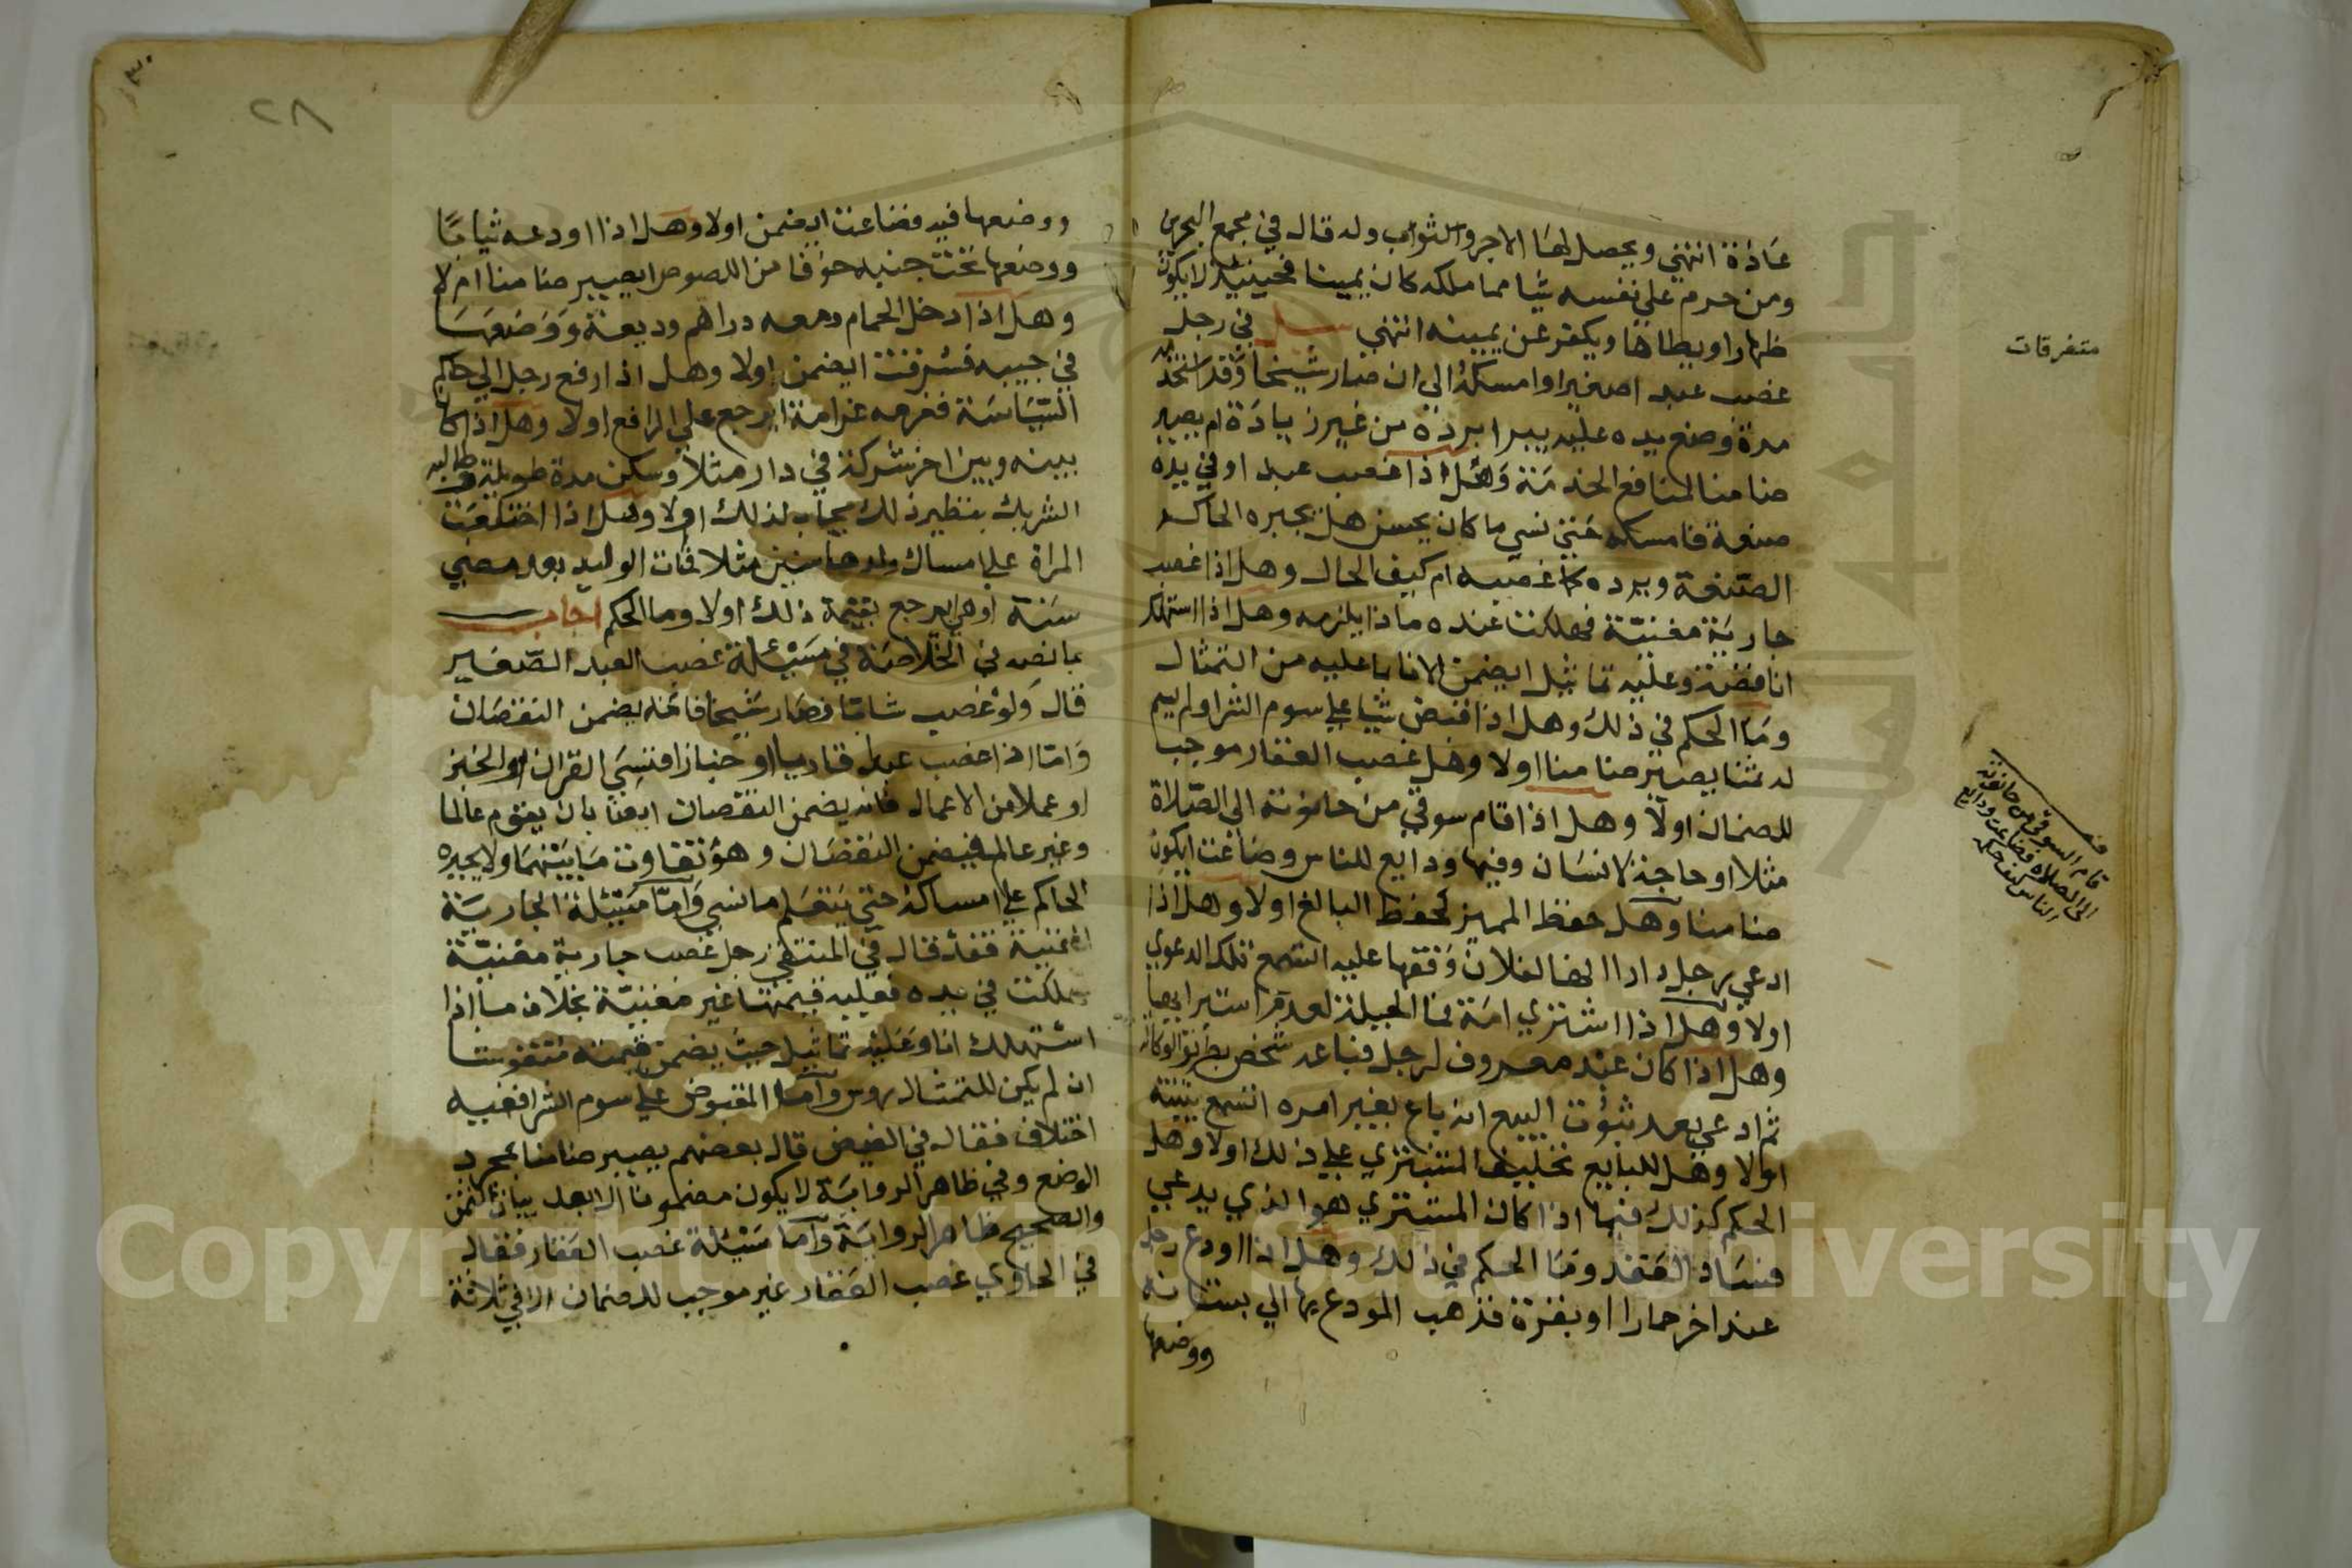 عادة انتهي ويحصل لها الاجر والثواب وله قال في مجمع البحرين
ومن حرم علي نفسه شيا مما ملكه كان يمينا فحينئذ لا يكون
ظهارا ويطاها ويكفر عن يمينه انتهي سئل في رجل
غصب عبدا صغيرا وامسكه الي ان صار شيخا وقد استخدمه
مدة وضع يده عليه يبرا برده من غير زيادة ام يصير
ضامنا لمنافع الخدمة وهل اذا غصب عبدا وفي يده
صنعة فامسكه حتي نسي ما كان يحسن هل يجبره الحاكم
الصنعة ويرده كما غصبه ام كيف الحال وهل اذا غصب
جارية مغنية فهلكت عنده ماذا يلزمه وهل اذا استهلك
انا فضة وعليه تماثيل ايضمن الانا بما عليه من التمثال
وما الحكم في ذلك وهل اذا قبض شيا علي سوم الشرا ولم يسم
له ثمنا يصير ضامنا اولا وهل غصب العقار موجب
للضمان اولا وهل اذا قام سوقي من حانوته الي الصلاة
مثلا او حاجة لانسان وفيها ودايع للناس وضاعت ايكون
ضامنا وهل حفظ المميز كحفظ البالغ اولا وهل اذا
ادعي رجل دارا انها لفلان وقفها عليه اتسمع تلك الدعوي
اولا وهل اذا اشتري امة فما الحيلة لعدم استبرايها
وهل اذا كان عبد معروف لرجل فباعه شخص بطريق الوكالة
ثم ادعي بعد ثبوت البيع انه باع بغير امره اتسمع بينته
اولا وهل للبايع تحليف المشتري علي ذلك اولا وهل
الحكم كذلك فيما اذا كان المشتري هو الذي يدعي
فساد العقد وما الحكم في ذلك وهل اذا اودع رجل
عند اخر حمارا او بقرة فذهب المودع بها الي بستانه
ووضعها
متفرقات
قام السوقي من حانوته
الي الصلاه فضاعت ودايع
الناس كيف حكمه
٢٨
ووضعها فيه فضاعت ايضمن اولا وهل اذا اودعه ثيابا
ووضعها تحت جنبه خوفا من اللصوص ايصير ضامنا ام لا
وهل اذا دخل الحمام ومعه دراهم وديعة ووضعها
في جيبه فسرقت ايضمن اولا وهل اذا رفع رجل الي حاكم
السياسة فغرمه غرامة ايرجع علي الرافع اولا وهل اذا كان
بينه وبين اخر شركة في دار مثلا وسكن مدة طويلة وطالبه
الشريك بنظير ذلك يجاب لذلك اولا وهل اذا اختلعت
المراة علي امساك ولدها سنين مثلا فمات الوليد بعد مضي
سنة او هل يرجع بقيمة ذلك اولا وما الحكم اجاب
بما نصه في الخلاصة في مسئلة غصب العبد الصغير
قال ولو غصب شابا فصار شيخا فانه يضمن النقصان
واما اذا غصب عبدا قاريا او خبازا فنسي القران او الخبز
او عملا من الاعمال فانه يضمن النقصان ايضا بان يقوم عالما
وغير عالم فيضمن النقصان وهو تفاوت ما بينهما ولا يجبره
الحاكم علي امساكه حتي يتعلم ما نسي واما مسئلة الجارية
المغنية فقد قال في المنتقي رجل غصب جارية مغنية
هلكت في يده فعليه قيمتها غير مغنية بخلاف ما اذا
استهلك انا وعليه تماثيل حيث يضمن قيمته منقوشا
ان لم يكن للتمثال روس واما المقبوض علي سوم الشرا ففيه
اختلاف فقال في الفيض قال بعضهم يصير ضامنا بمجرد
الوضع وفي ظاهر الرواية لا يكون مضمونا الا بعد بيان الثمن
والصحيح ظاهر الرواية واما مسئلة غصب العقار فقال
في الحاوي غصب العقار غير موجب للضمان الا في ثلاثة
Copyright © King Saud University